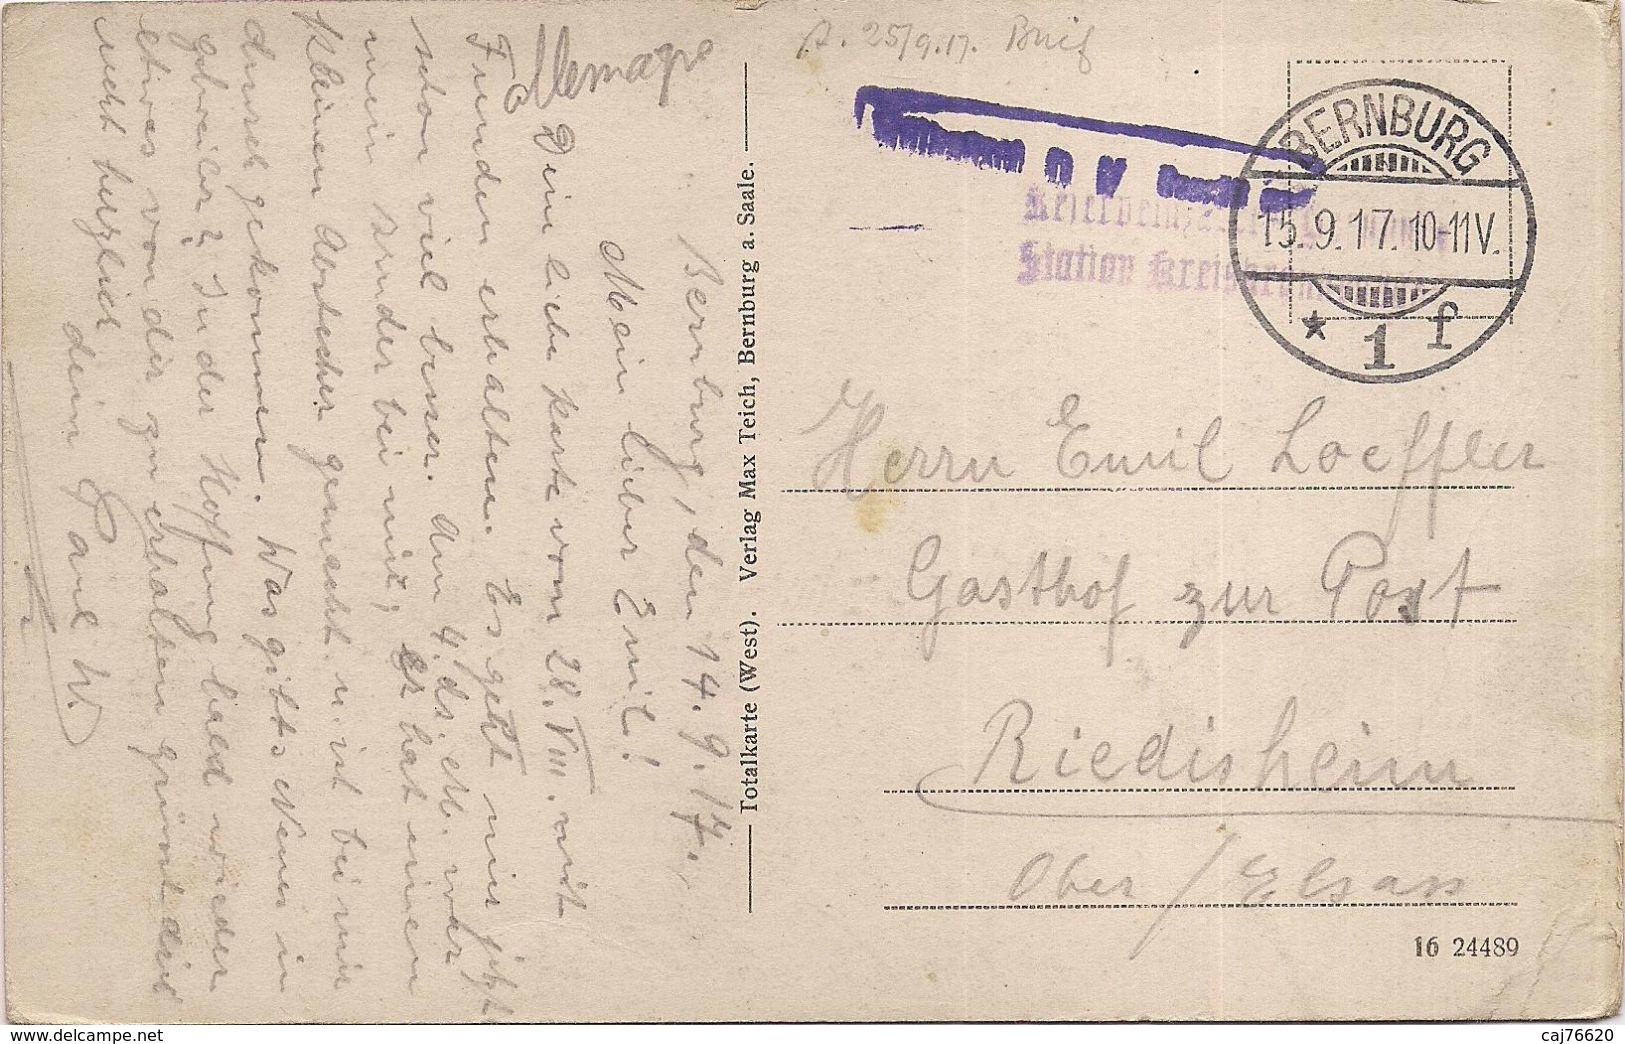 A. 25/9.17. Brief
Allemagne
Bernburg, den 14.9.17.
Mein lieber Emil!
Deine liebe Karte vom 28. VIII. mit
Freuden erhalten. Es geht mir jetzt
schon viel besser. Am 4. ds. M. war
mein Bruder bei mir; er hat einen
kleinen Abstecher gemacht u. ist bei mir
durch gekommen. Was gibts Neues in
Gebweiler? In der Hoffnung bald wieder
etwas von dir zu erhalten grüsst dich
recht herzlich
dein Paul W.
Totalkarte (West). Verlag Max Teich, Bernburg a. Saale.
BERNBURG
15.9.17.10-11V.
* 1 f
Station
Herrn Emil Loeffler
Gasthof zur Post
Riedisheim
Ober / Elsass
16 24489
www.delcampe.net
caj76620